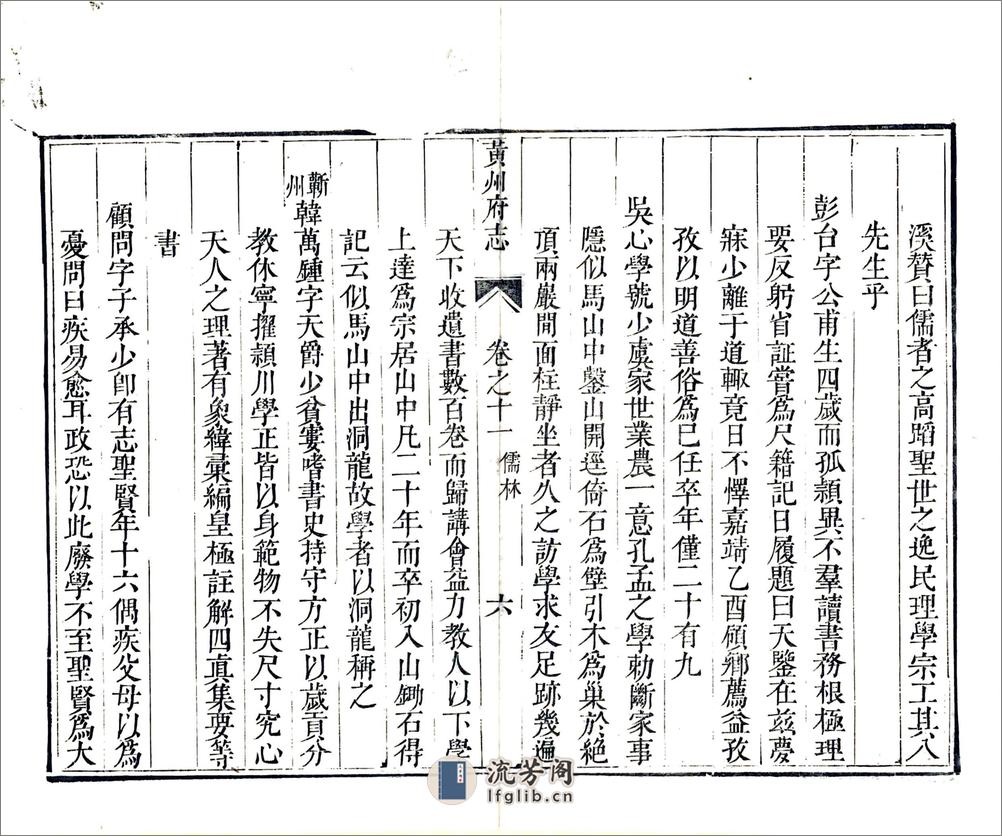 溪贊曰儒者之高蹈聖世之逸民理學宗工其八
先生乎
彭台字公甫生四歲而孤穎異不羣讀書務根極理
要反躬省証嘗為尺籍記日履題曰天鑒在茲夢
寐少離于道輒竟日不懌嘉靖乙酉領鄉薦益孜
孜以明道善俗為已任卒年僅二十有九
吳心學號少虞家世業農一意孔孟之學勅斷家事
隱似馬山中鑿山開逕倚石為壁引木為巢於絕
頂兩巖閒面柱靜坐者久之訪學求友足跡幾遍
黃州府志
卷之十一 儒林
六
天下收遺書數百卷而歸講會益力教人以下學
上達為宗居山中凡二十年而卒初入山鋤石得
記云似馬山中出洞龍故學者以洞龍稱之
蘄州
韓萬鍾字天爵少貧窶嗜書史持守方正以歲貢分
教休寧擢潁川學正皆以身範物不失尺寸究心
天人之理著有象緯彙編皇極註解四眞集要等
書
顧問字子承少卽有志聖賢年十六偶疾父母以為
憂問曰疾易愈耳政恐以此廢學不至聖賢為大
流芳阁
lfglib.cn